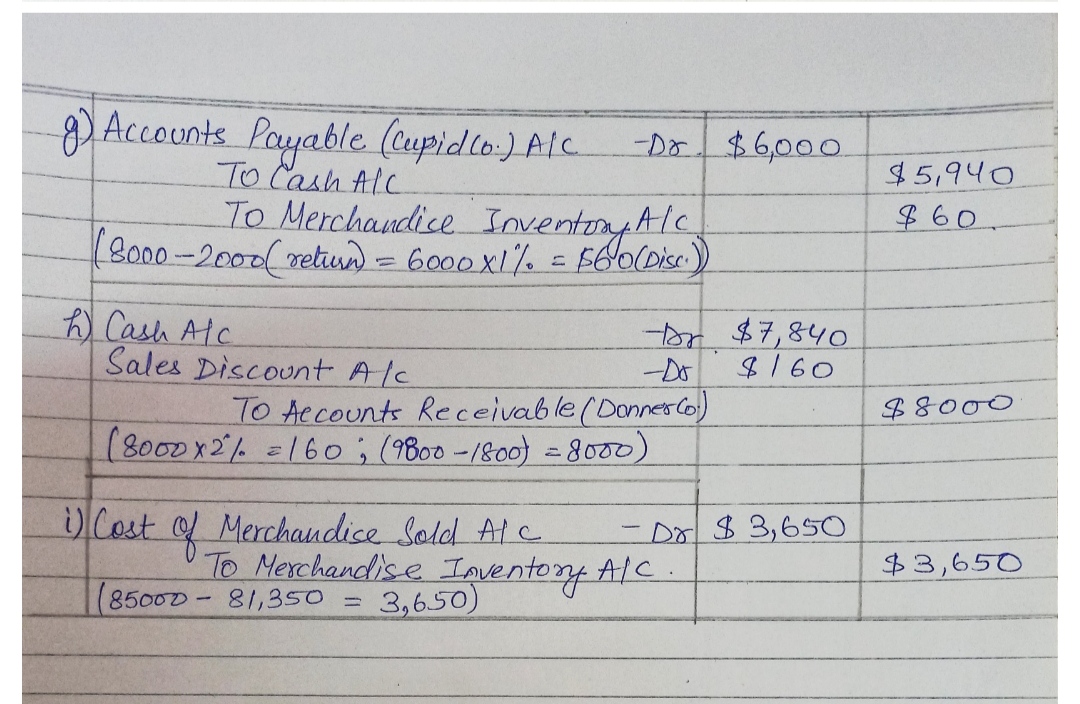 g) Accounts Payable (Cupid Co.) A/C -Dr. $6,000
To Cash A/C $5,940
To Merchandise Inventory A/C $60
(8000-2000(return) = 6000x1% = $60(Disc.))
h) Cash A/C -Dr $7,840
Sales Discount A/c -Dr $160
To Accounts Receivable (Donner Co.) $8000
(8000x2% =160 ; (9800-1800) =8000)
i) Cost of Merchandise Sold A/C - Dr $3,650
To Merchandise Inventory A/C. $3,650
(85000 - 81,350 = 3,650)